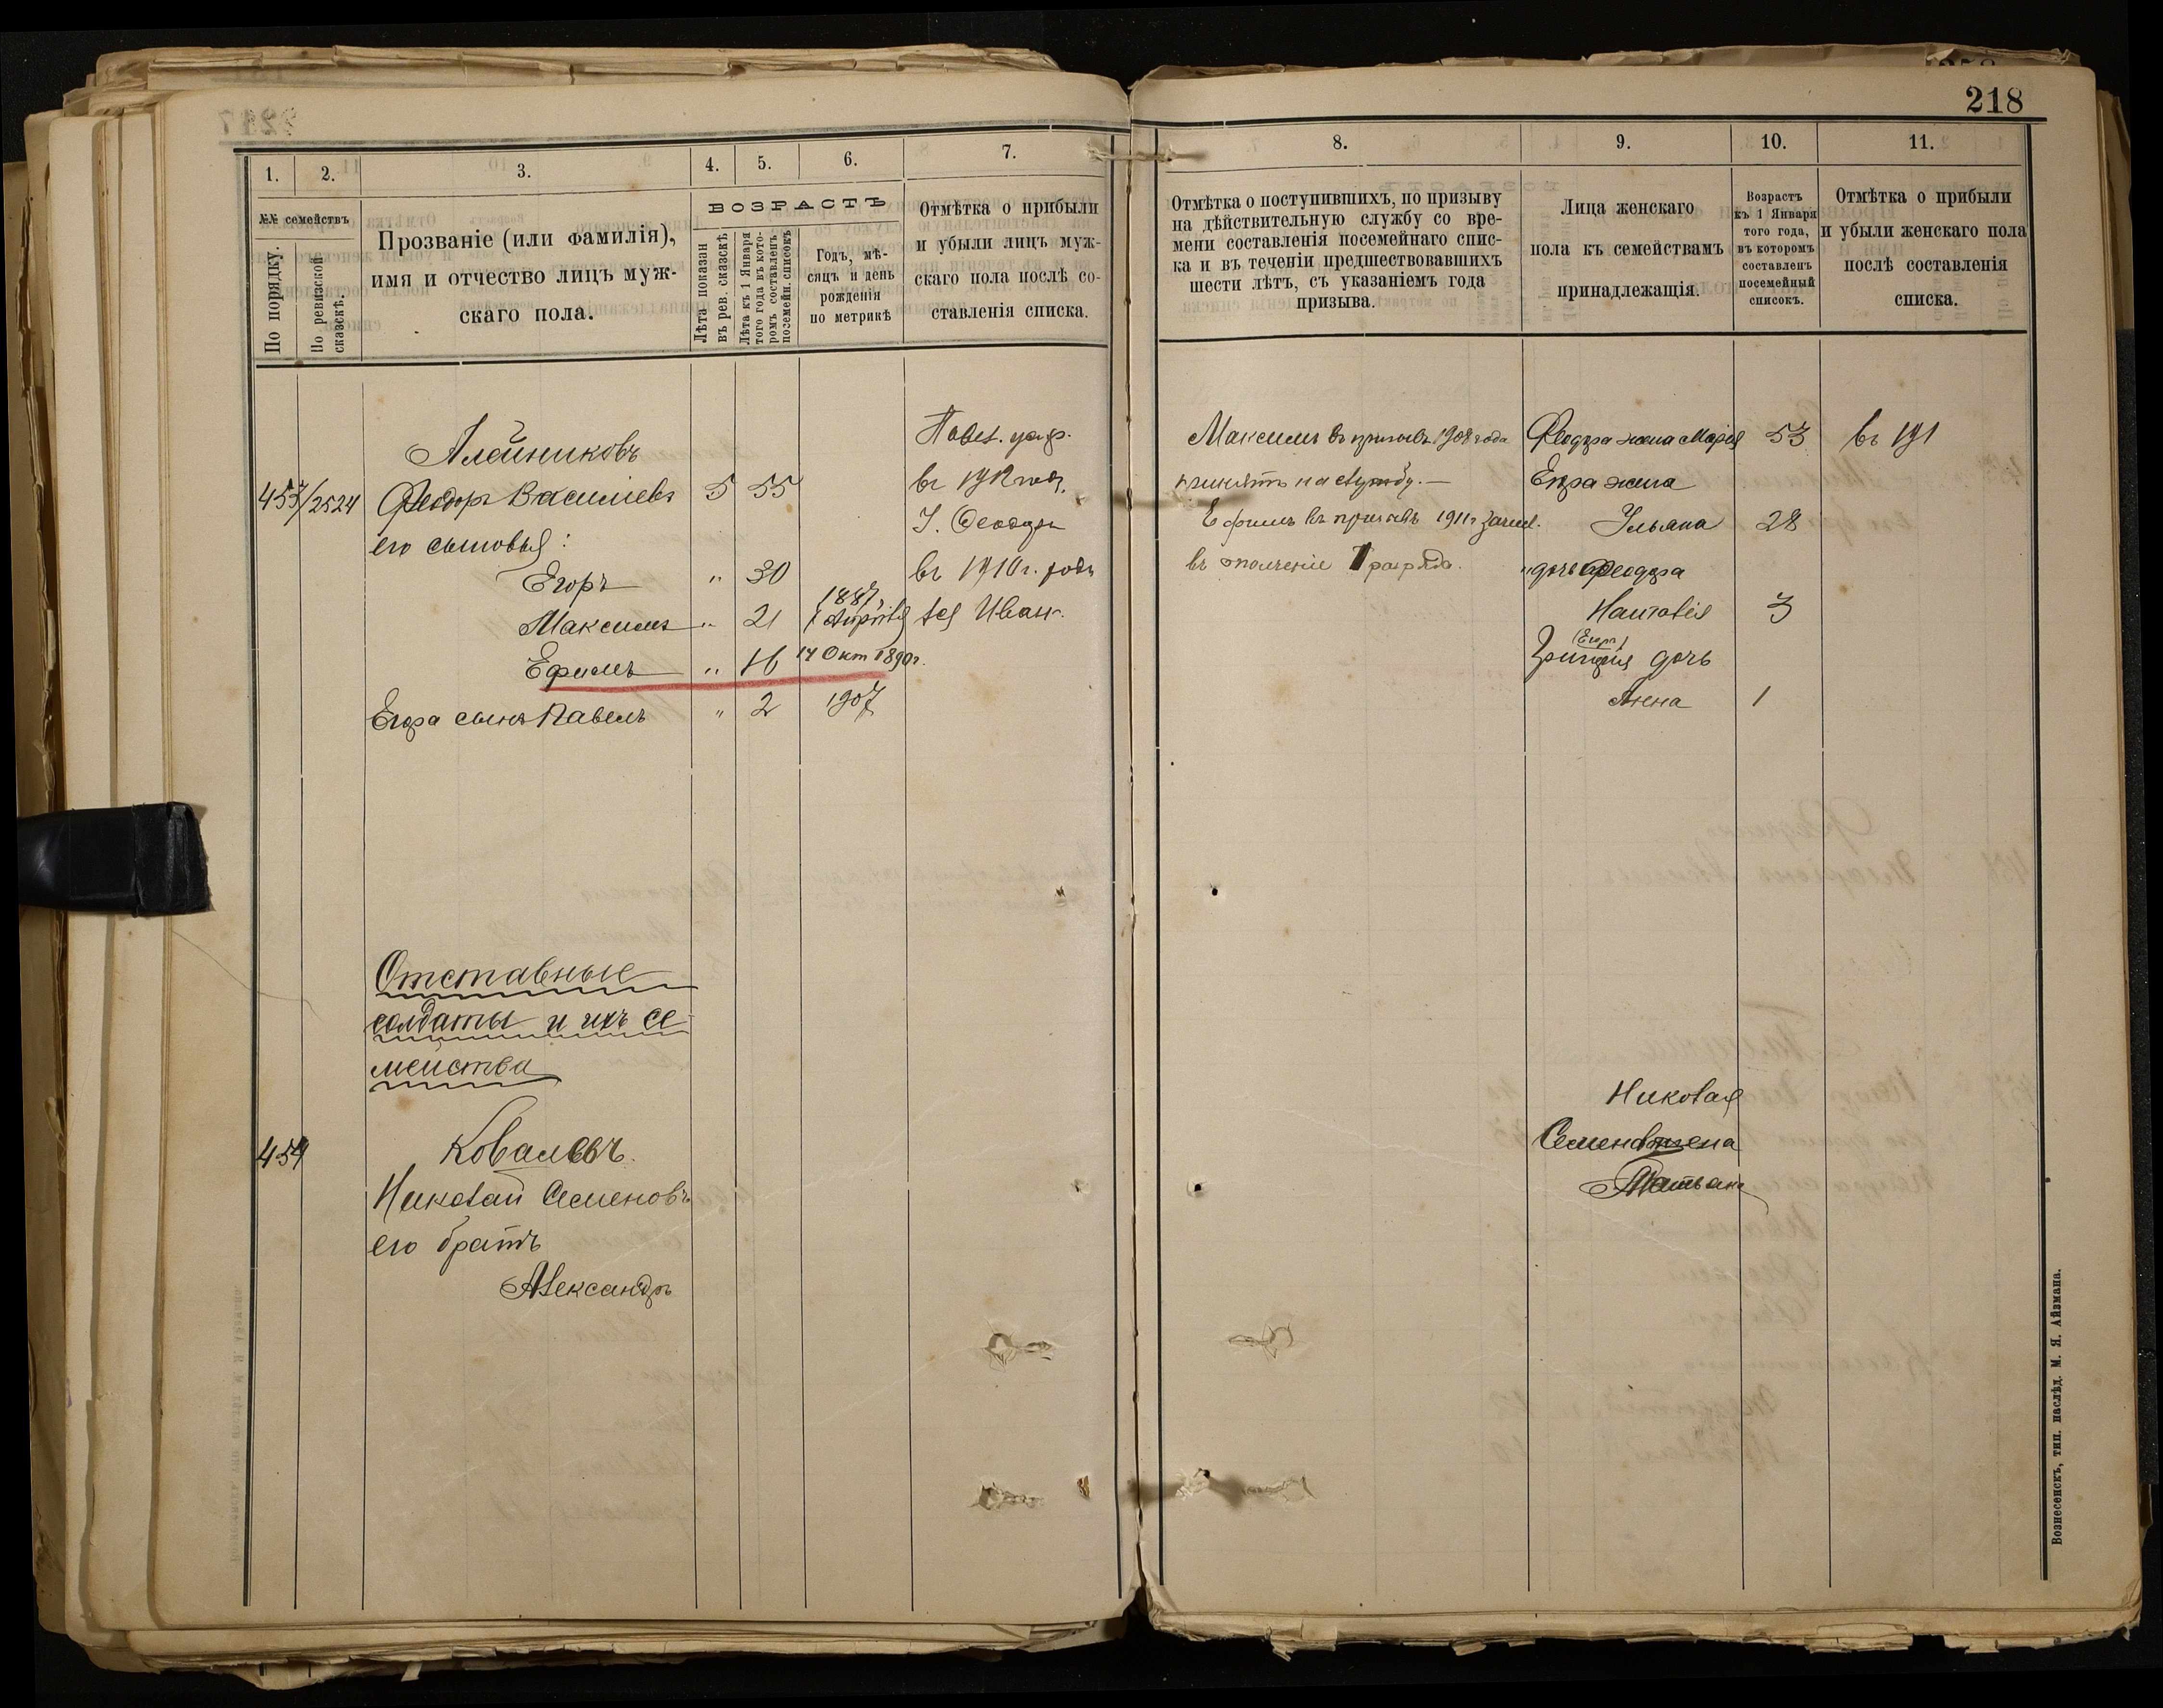 218
1.
2.
3.
4.
5.
6.
7.
№№ семействъ
По порядку.
По ревизской
сказскѣ.
Прозваніе (или фамилія),
имя и отчество лицъ муж-
скаго пола.
ВОЗРАСТЪ
Лѣта показан
въ рев. сказскѣ
Лѣта къ 1 Января
того года въ кото-
ромъ составленъ
посемейн. списокъ
Годъ, мѣ-
сяцъ и день
рожденія
по метрикѣ
Отмѣтка о прибыли
и убыли лицъ муж-
скаго пола послѣ со-
ставленія списка.
Алейниковъ
457/2524 Феодоръ Василіевъ 5 55
его сыновья:
Егоръ " 30
Максимъ " 21 1887
Ефимъ " 16 14 Окт 1890г.
Егора сынъ Павелъ " 2 1907
Павел.
въ 1912 год.
въ 1910г. роди
лся Иван.
Отставные
солдаты и ихъ се-
мейства
459 Ковалевъ.
Николай Семеновъ
его братъ
Александръ
8.
9.
10.
11.
Отмѣтка о поступившихъ, по призыву
на дѣйствительную службу со вре-
мени составленія посемейнаго спис-
ка и въ теченіи предшествовавшихъ
шести лѣтъ, съ указаніемъ года
призыва.
Лица женскаго
пола къ семействамъ
принадлежащія.
Возрастъ
къ 1 Января
того года,
въ которомъ
составленъ
посемейный
списокъ.
Отмѣтка о прибыли
и убыли женскаго пола
послѣ составленія
списка.
Максимъ въ призывъ 1908 года
принятъ на службу. —
Ефимъ въ призывъ 1911г зачисл.
въ ополченіе разряда.
Феодора жена Марія 53 въ 191
Егора жена
Ульяна 28
"дочь Феодора
Наталія 3
дочь
Анна 1
Николая
Семенов жена
Татьяна
Вознесенскъ, тип. наслѣд. М. Я. Айзмана.